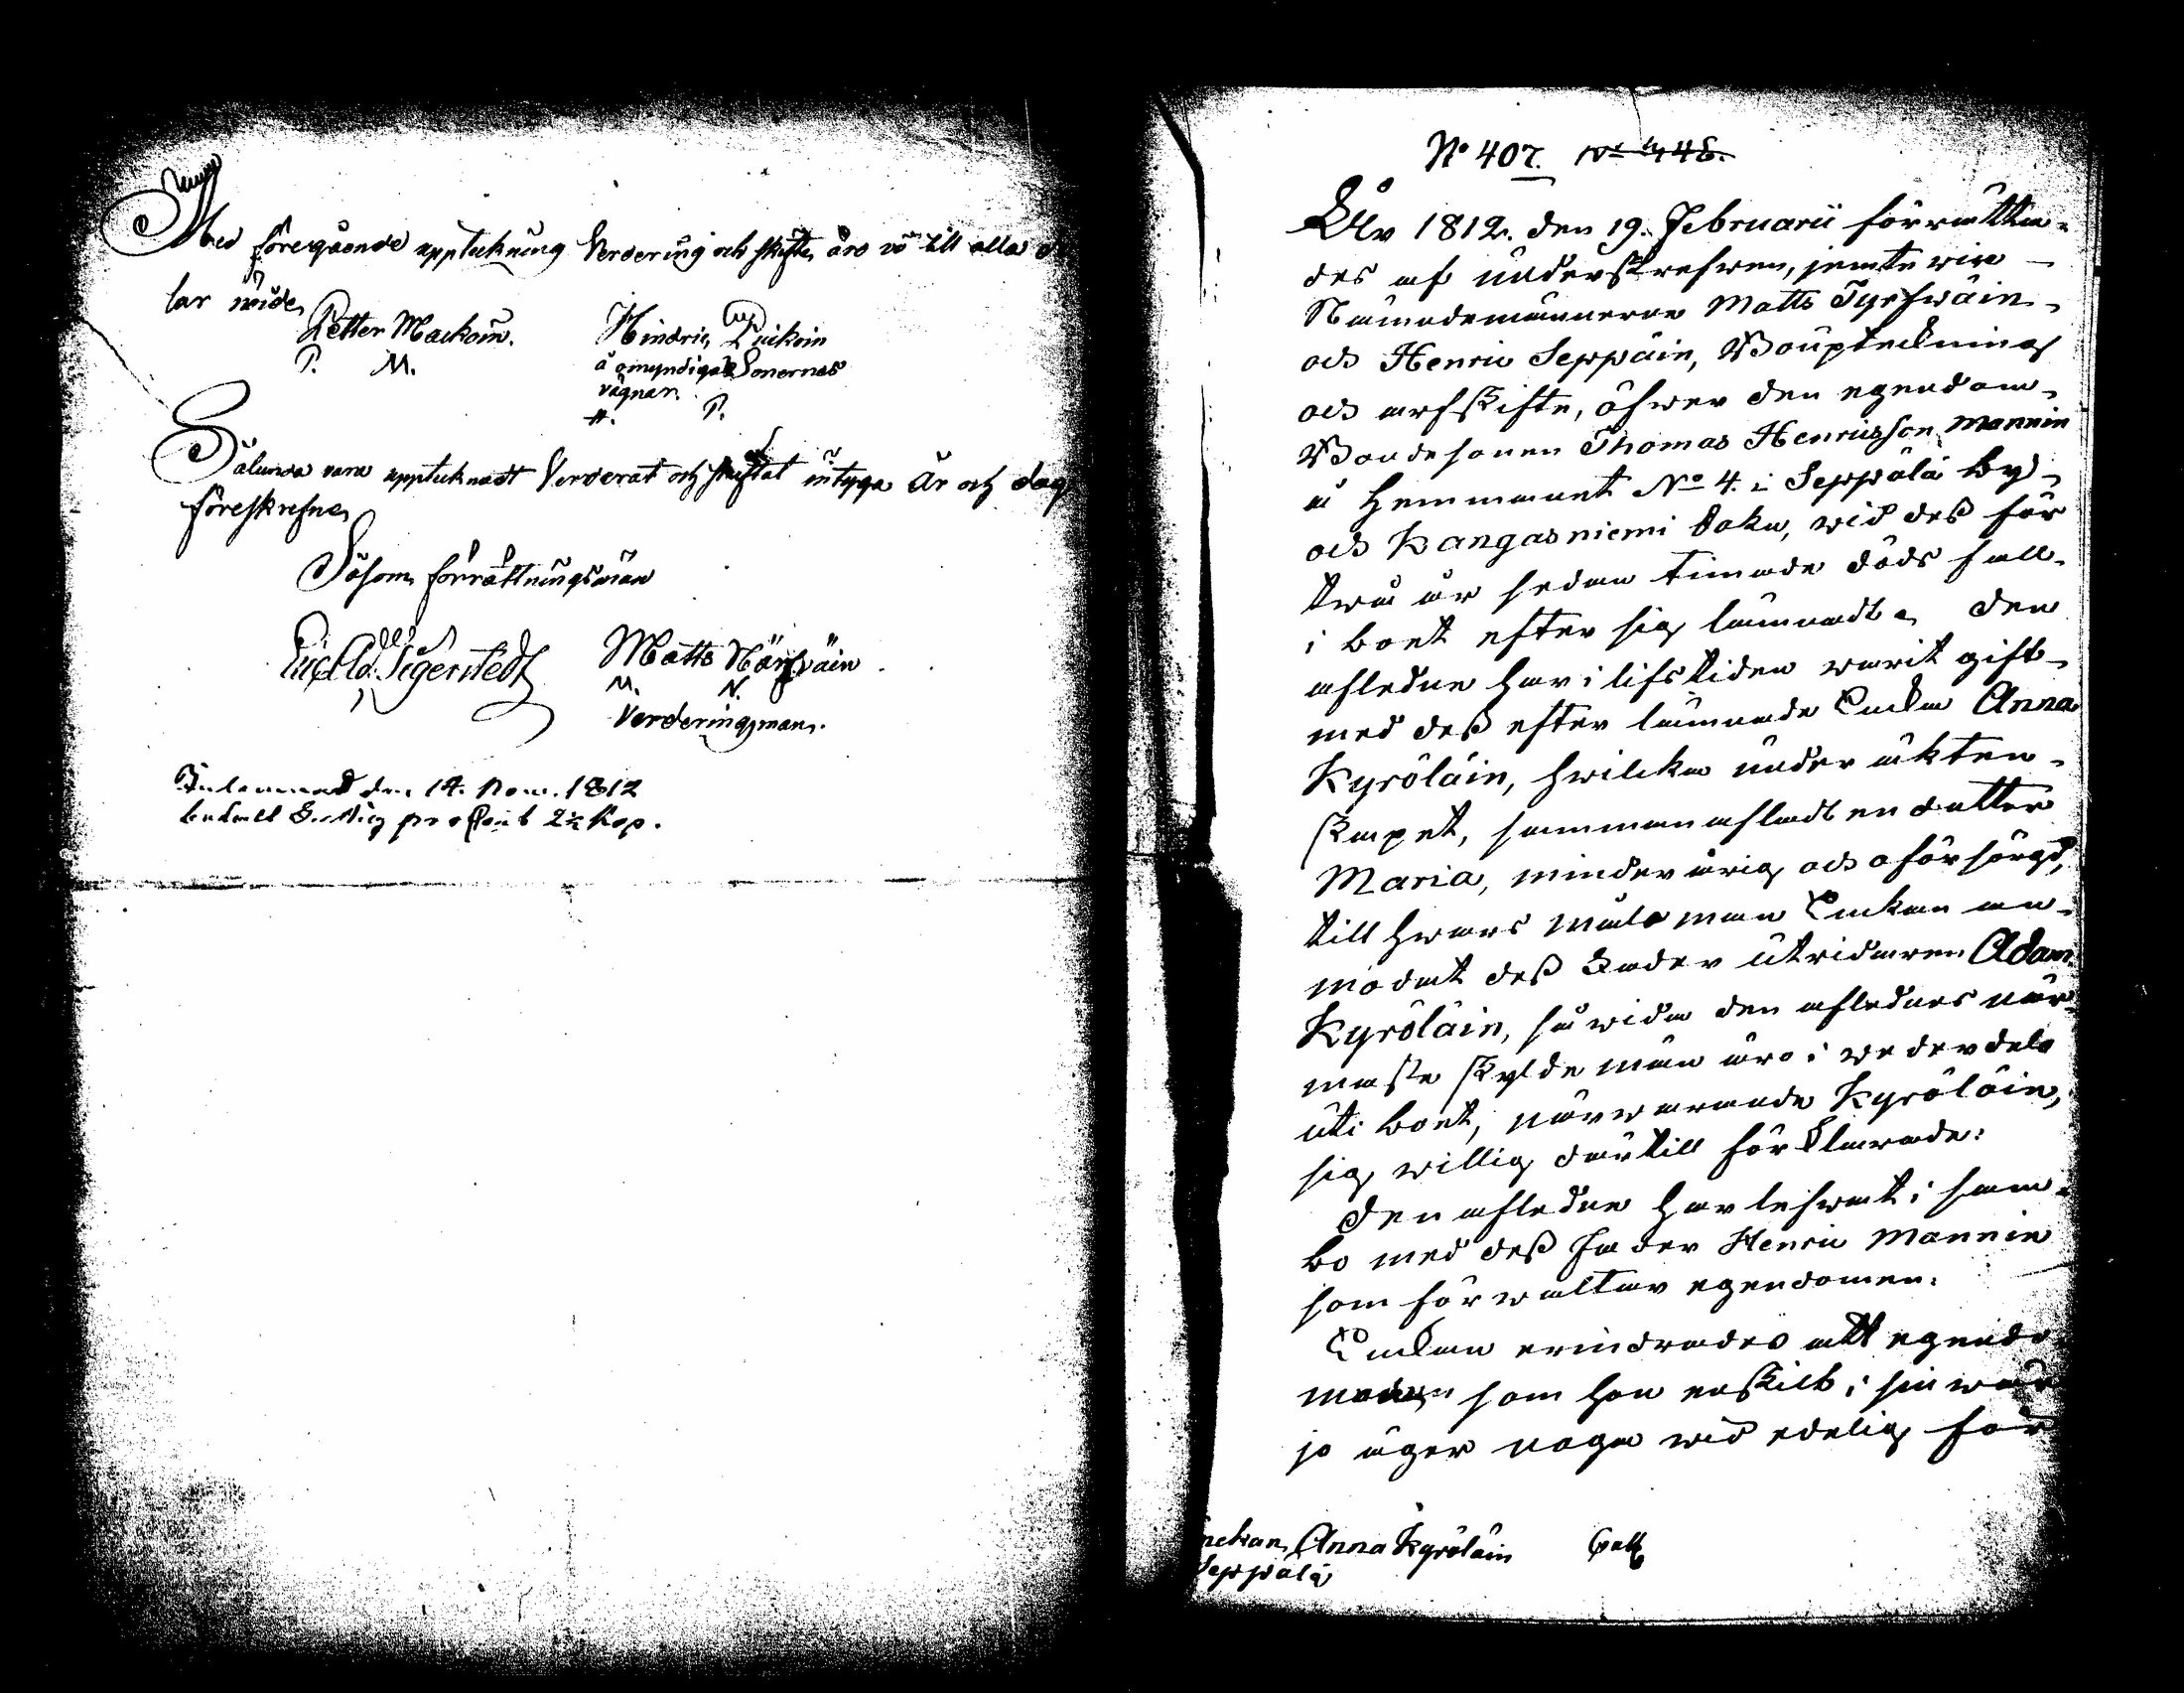 Med föregående upptekning Verdering och skifte äro vi till alla de
lar nöide
Petter Mackoin. Hindric Puikoin
P. M. å omyndiga Sonernas
vägnar.
H. P.
Sålunda vara upptecknadt Verderat och skiftat intyga År och dag
föreskrefne
Såsom förrättningsmän
Sigerstedt Matts Närhwäin
M. N.
Verderingsman.
Inlemnad den 14. Nov. 1812
2½ Kop.
No 407. No 448.
År 1812. den 19. Februarii förrätta-
des af underskrefwen, jemte wice
Nämndemännerne Matts Tyrfwäin
och Henric Seppäin, Bouptekning
och arfskifte, öfwer den egendom
Bondesonen Thomas Henricsson Mannin
å Hemmanet No 4. i Seppälä by
och Kangasniemi Sokn, wid dess för
twå år sedan timade dödsfall
i boet efter sig lämnadt. Den
afledne har i lifstiden warit gift
med dess efterlämnade Encka Anna
Kyröläin, hwilcka under äkten-
skapet, sammanafladt en dotter
Maria, minderårig och oförsörgd,
till hwars målsman Enkan an-
modat dess Fader utridaren Adam
Kyröläin, så wida den aflednes när-
maste skyldemän äro i wederdelo
uti boet, närwarande Kyröläin,
sig willig därtill förklarade:
Den afledne har lefwat i sam-
bo med dess Fader Henric Mannin
som förwaltar egendomen.
Enckan erindrades att egendo-
men som hon enskilt i sin wär-
jo äger noga wid edelig för
nckan Anna Kyröläin
Seppälä